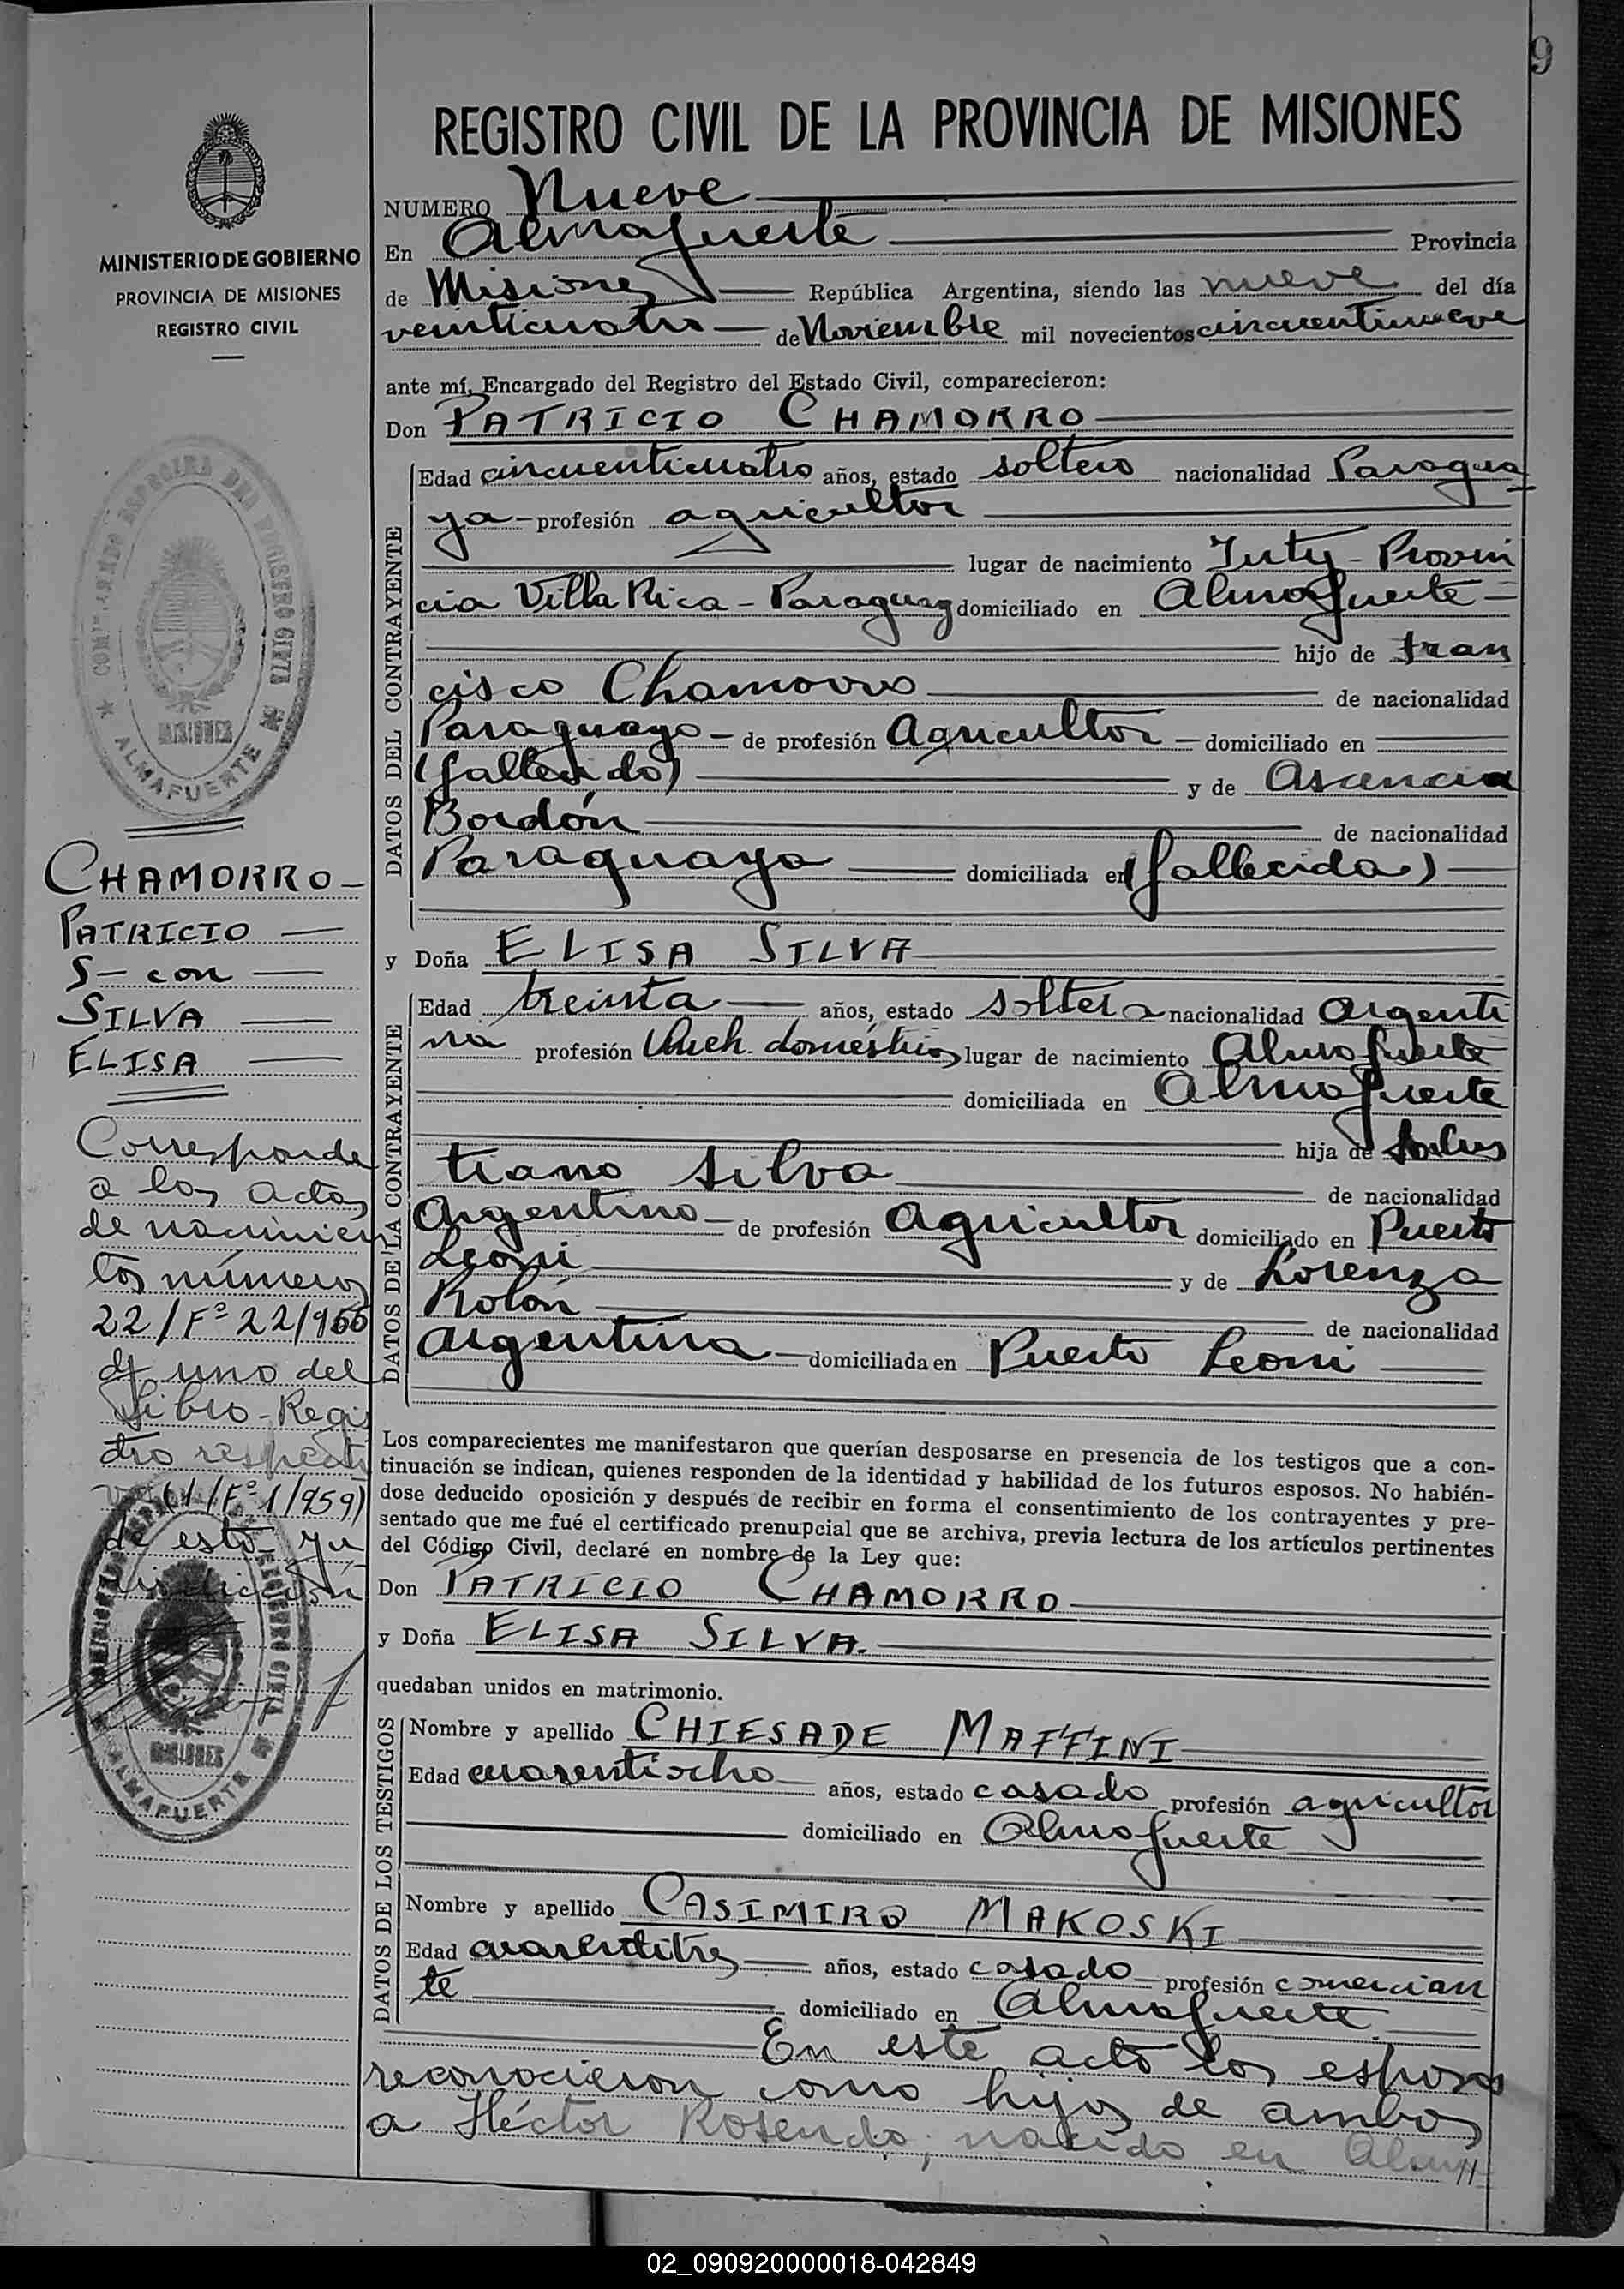 9
REGISTRO CIVIL DE LA PROVINCIA DE MISIONES
NUMERO Nueve
En Almafuerte Provincia
de Misiones República Argentina, siendo las nueve del día
veinticuatro de Noviembre mil novecientos cincuentinueve
ante mí, Encargado del Registro del Estado Civil, comparecieron:
Don PATRICIO CHAMORRO
DATOS DEL CONTRAYENTE
Edad cincuenticuatro años, estado soltero nacionalidad Paragua
ya - profesión agricultor
lugar de nacimiento Yuty - Provin
cia Villa Rica - Paraguay domiciliado en Almafuerte -
hijo de Fran
cisco Chamorro de nacionalidad
Paraguayo - de profesión Agricultor - domiciliado en
(fallecido) y de Ascencia
Bordón de nacionalidad
Paraguaya domiciliada en (fallecida)
y Doña ELISA SILVA
DATOS DE LA CONTRAYENTE
Edad treinta años, estado soltera nacionalidad Argenti
na profesión Queh. domésticos lugar de nacimiento Almafuerte
domiciliada en Almafuerte
hija de
tiano Silva de nacionalidad
Argentino - de profesión Agricultor domiciliado en Puerto
Leoni y de Lorenza
Rolón de nacionalidad
Argentina domiciliada en Puerto Leoni
Los comparecientes me manifestaron que querían desposarse en presencia de los testigos que a con-
tinuación se indican, quienes responden de la identidad y habilidad de los futuros esposos. No habién-
dose deducido oposición y después de recibir en forma el consentimiento de los contrayentes y pre-
sentado que me fué el certificado prenupcial que se archiva, previa lectura de los artículos pertinentes
del Código Civil, declaré en nombre de la Ley que:
Don PATRICIO CHAMORRO
y Doña ELISA SILVA.
quedaban unidos en matrimonio.
DATOS DE LOS TESTIGOS
Nombre y apellido CHIESADE MAFFINI
Edad cuarentiocho años, estado casado profesión agricultor
domiciliado en Almafuerte
Nombre y apellido CASIMIRO MAKOSKI
Edad cuarentitres años, estado casado profesión comercian
te domiciliado en Almafuerte.
En este acto los esposos
reconocieron como hijos de ambos
a Héctor Rosendo, nacido en Alm//
MINISTERIO DE GOBIERNO
PROVINCIA DE MISIONES
REGISTRO CIVIL
REGISTRO CIVIL
MISIONES
ALMAFUERTE
CHAMORRO -
PATRICIO
S - con
SILVA
ELISA
Corresponde
a las actas
de nacimien
tos números
22/Fº 22/955
y uno del
Libro-Regis
tro respecti
vo (1/Fº 1/959)
de esta ju
risdicción
REGISTRO CIVIL
MISIONES
ALMAFUERTE
02_090920000018-042849